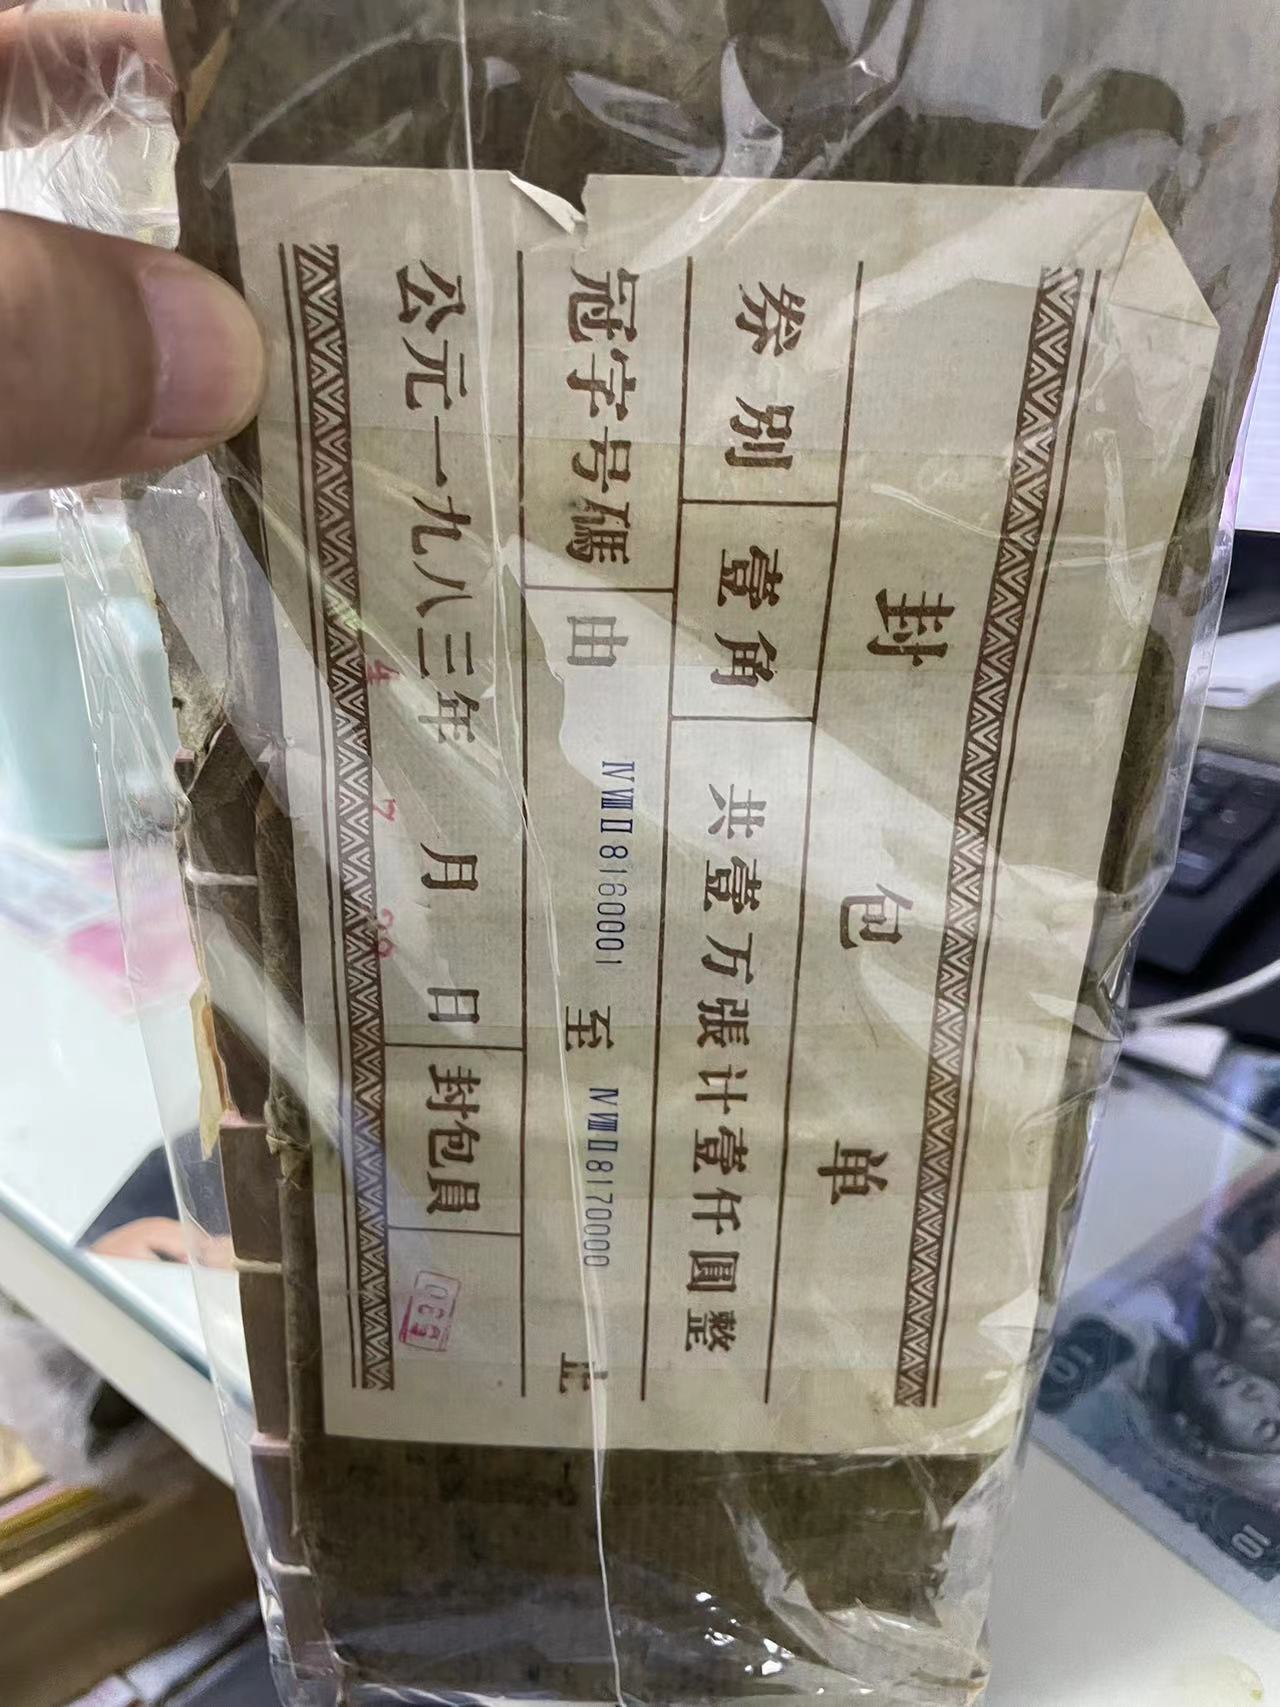 封包单
券别 壹角 共壹万張计壹仟圓整
冠字号碼 由 ⅣⅧⅡ8160001 至 ⅣⅧⅡ8170000 止
公元一九八三年 月 日 封包員
4 7
10
10